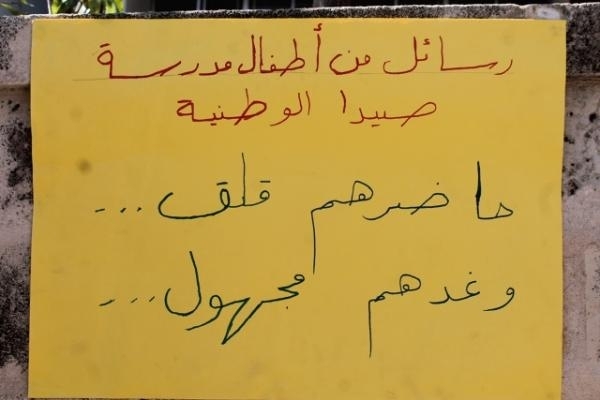 رسائل من أطفال مدرسة
صيدا الوطنية
حاضرهم قلق...
وغدهم مجهول...